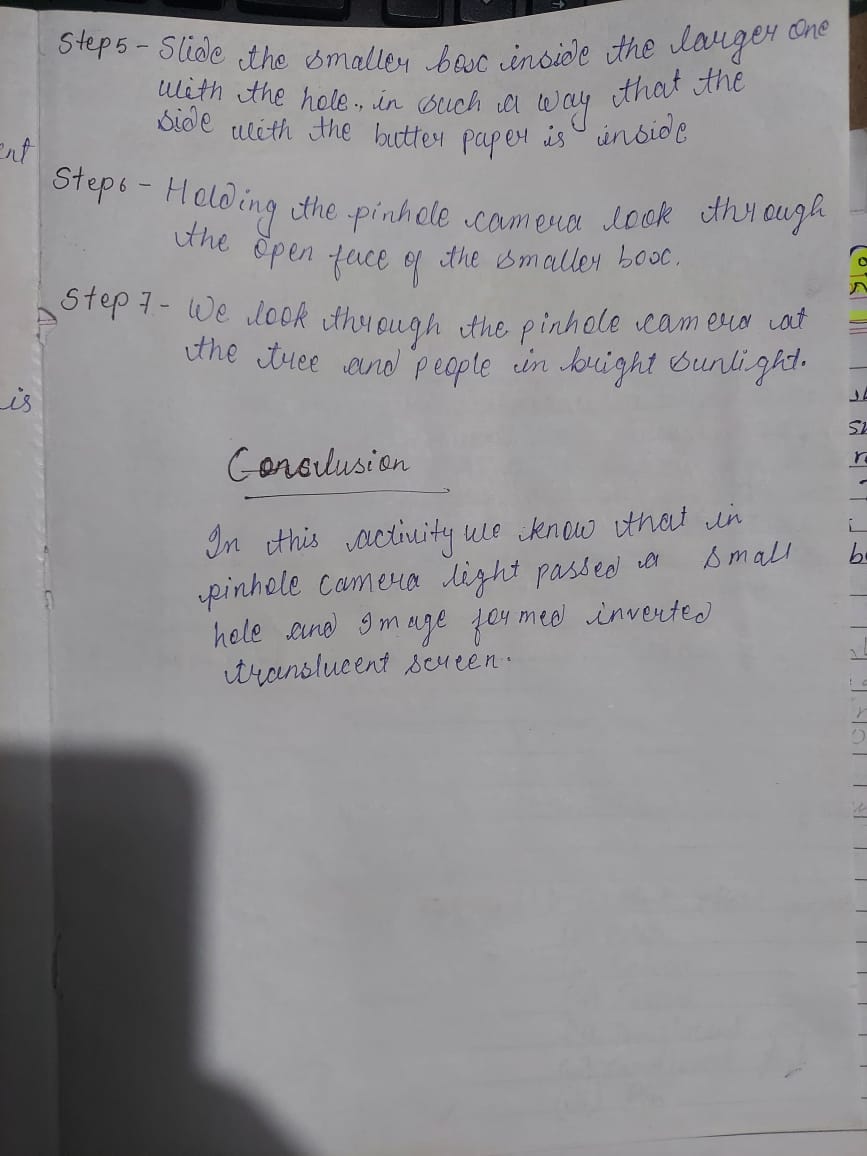 Step 5 - Slide the smaller box inside the larger one
with the hole, in such a way that the
side with the butter paper is inside
ent
Step 6 - Holding the pinhole camera look through
the open face of the smaller box.
Step 7 - We look through the pinhole camera at
the tree and people in bright sunlight.
is
Conclusion
In this activity we know that in
pinhole camera light passed a small
hole and Image formed inverted
translucent screen.